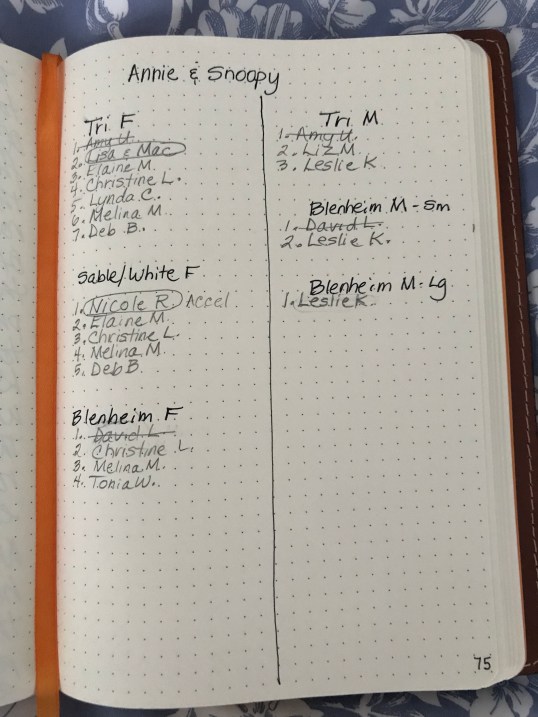 Annie & Snoopy
Tri F
1. Amy U.
2. Lisa & Mac
3. Elaine M.
4. Christine L.
5. Lynda C.
6. Melina M.
7. Deb B.
Sable/White F
1. Nicole R. Accel
2. Elaine M.
3. Christine L.
4. Melina M.
5. Deb B.
Blenheim F
1. David L
2. Christine L.
3. Melina M.
4. Tonia W.
Tri M
1. Amy U.
2. Liz M.
3. Leslie K
Blenheim M - Sm
1. David L.
2. Leslie K.
Blenheim M - Lg
1. Leslie K.
75